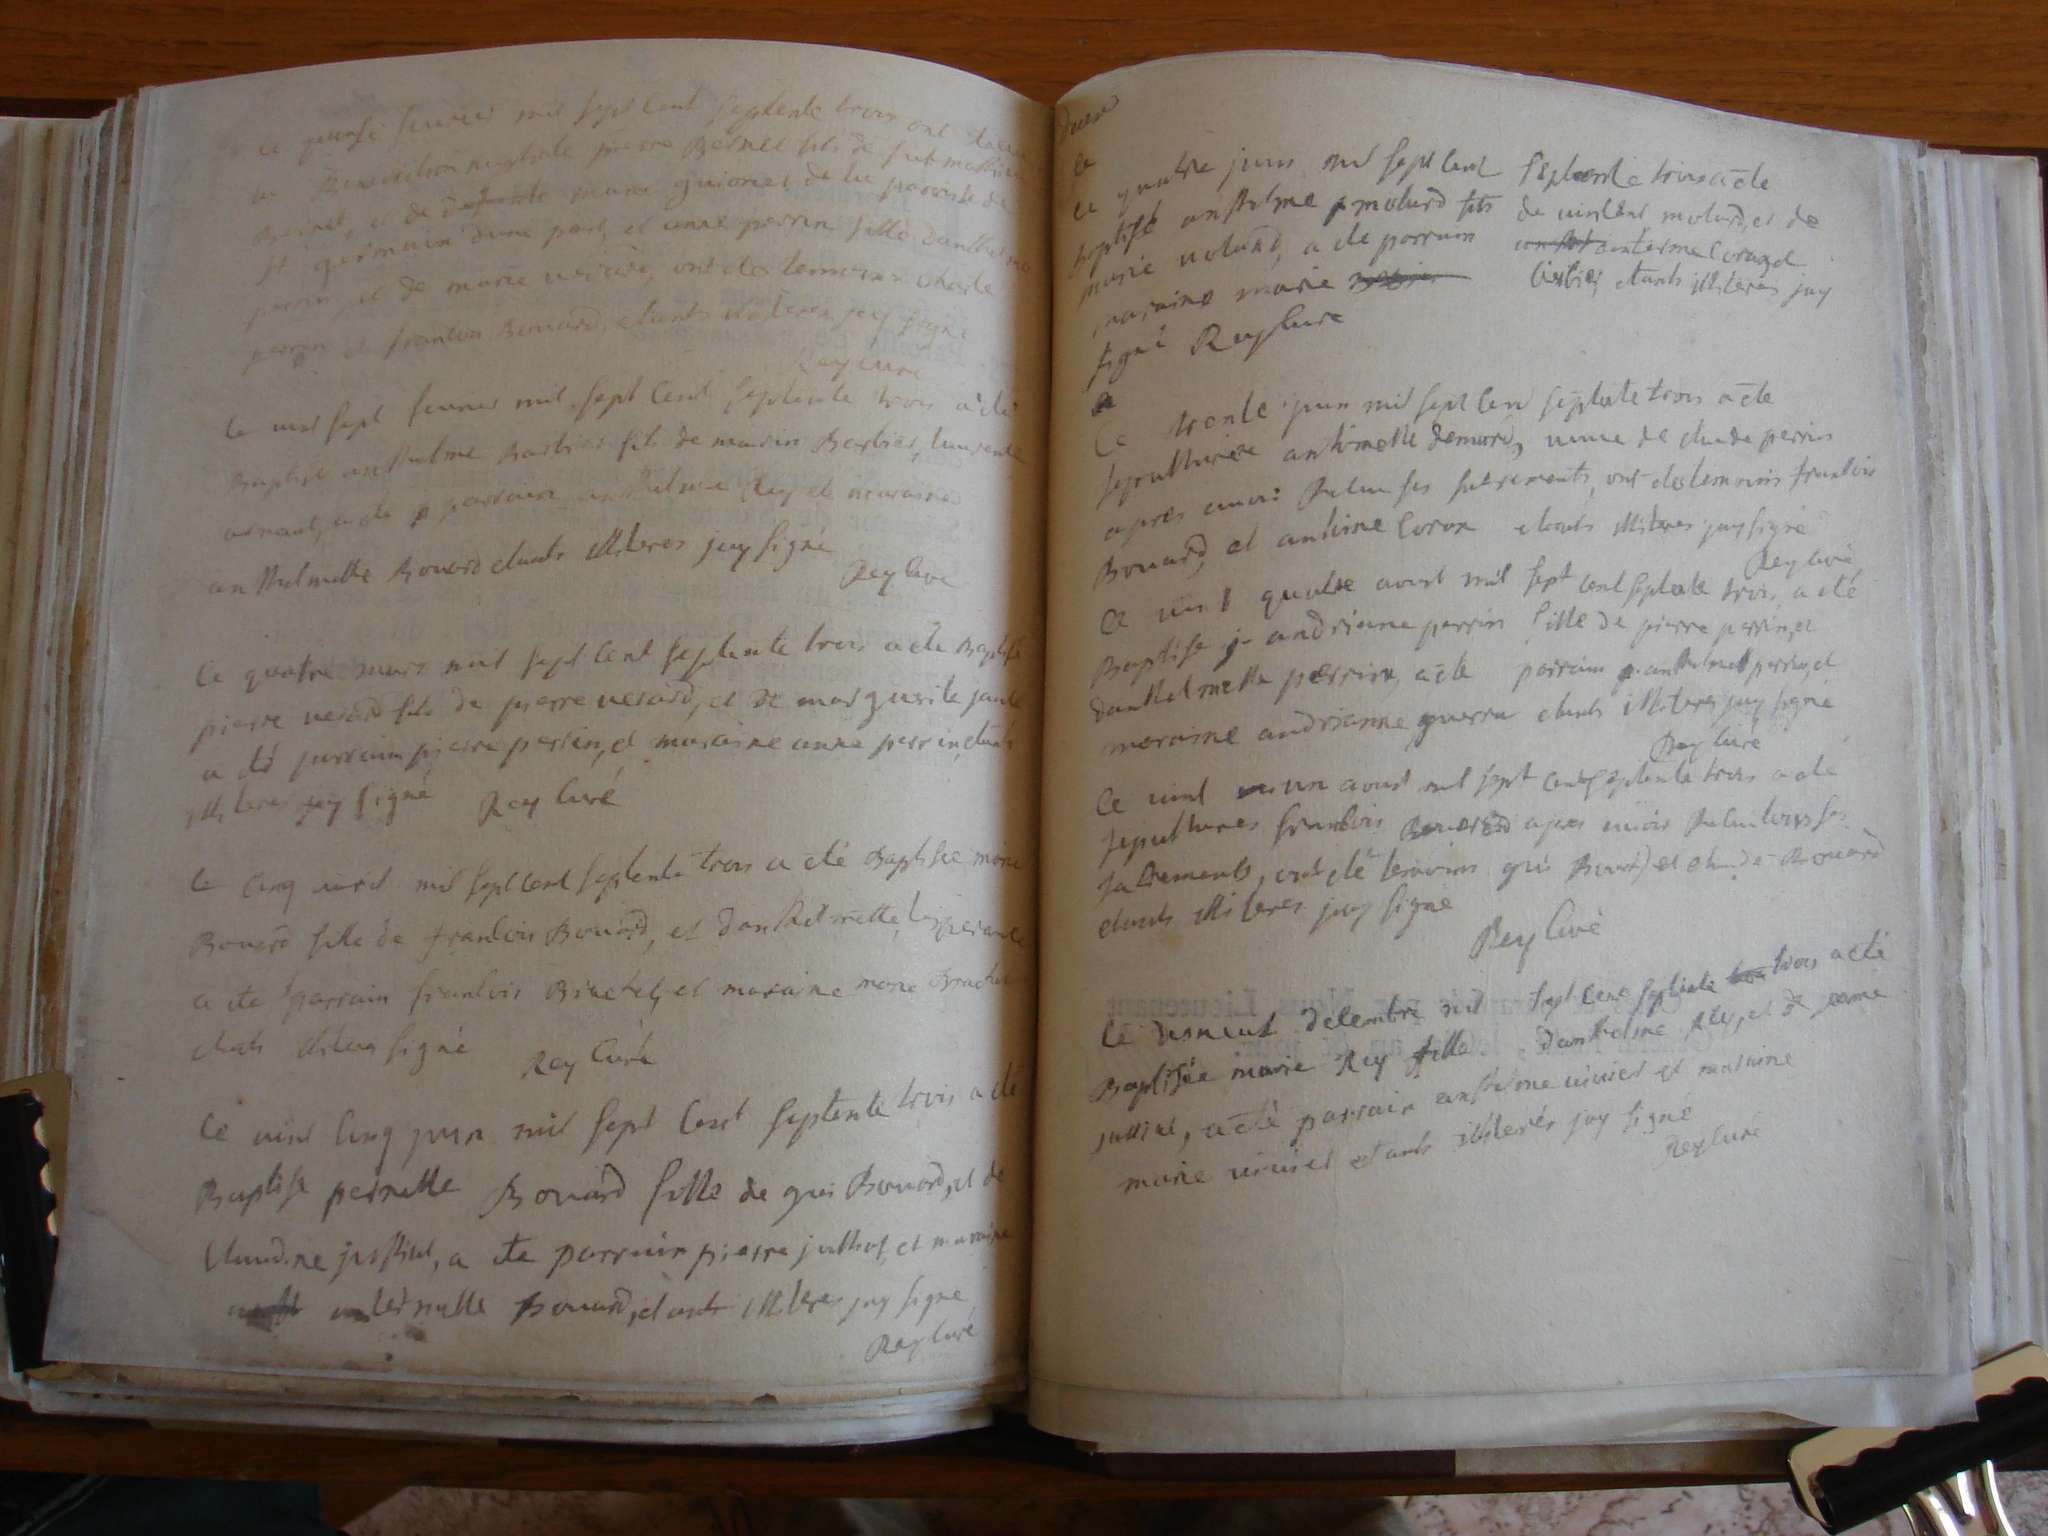 ce quinse fevrier mil sept cent septente trois ont
la Benediction nuptiale pierre Beinet fils de fut mathieu
Beinet, et de marie guionet de la paroisse de
st germain dune part, et anne perrin fille danthelme
perrin et de marie ont etes temoins charle
perrin et francois Bouard, etants illiteres jay signe
Rey curé
ce vint sept fevrier mil sept cent septente trois a été
Baptisé anthelme Barbier fils de marin Barbier, laurente
a ete parrain anthelme Rey et maraine
anthelmette Bouard etants illiteres jay signé
Rey Curé
Ce quatre mars mil sept cent septente trois a été Baptisé
pierre verard fils de pierre verard, et de marguerite
a été parrain pierre perrin, et maraine anne perrin, etants
illiteres jay signé Rey Curé
le cinq avril mil sept cent septente trois a été Baptisée marie
Bouard fille de francois Bouard, et danthelmette
a ete parrain francois Brachet, et maraine marie Brachet
etants illiteres signé Rey Curé
Ce vint Cinq juin mil sept Cent septente trois a été
Baptise pernette Bouard fille de gui Bouard, et de
Claudine justinet, a ete parrain pierre juthet, et maraine
Bouard, etants illiteres jay signe
Rey Curé
Ce
Ce quatre juin mil sept Cent septente trois a ete
baptisé anthelme molard fils de vincent molard, et de
marie volard, a ete parrain anterme Corand
maraine marie Barbier, etants illiteres jay
signé Rey Cure
Ce trente juin mil sept Cent septente trois a ete
sepulturée anthomette demard, veuve de claude perrin
apres avoir Recu ses sacrements, ont etes temoins francois
Bouard, et antoine Coron etants illiteres jay signé
Rey Curé
Ce vint quatre avoust mil sept cent septente trois, a été
Baptise andrianne perrin fille de pierre perrin, et
danthelmette perrin, a ete parrain anthelme perrin, et
maraine andrianne guerra etants illiteres jay signé
Rey Curé
Ce vint un avoust mil sept cent septente trois a ete
sepulturés francois Bouard apres avoir Recu tous ses
sacrements, ont été temoins gui Bouard et claude Bouard
etants illiteres jay signe
Rey Curé
Ce disneuf decembre mil sept cent septente trois a été
Baptisée marie Rey fille danthelme Rey, et de jeanne
justinet, a été parrain anthelme vivier et maraine
marie vivier etants illiterés jay signé
Rey Curé